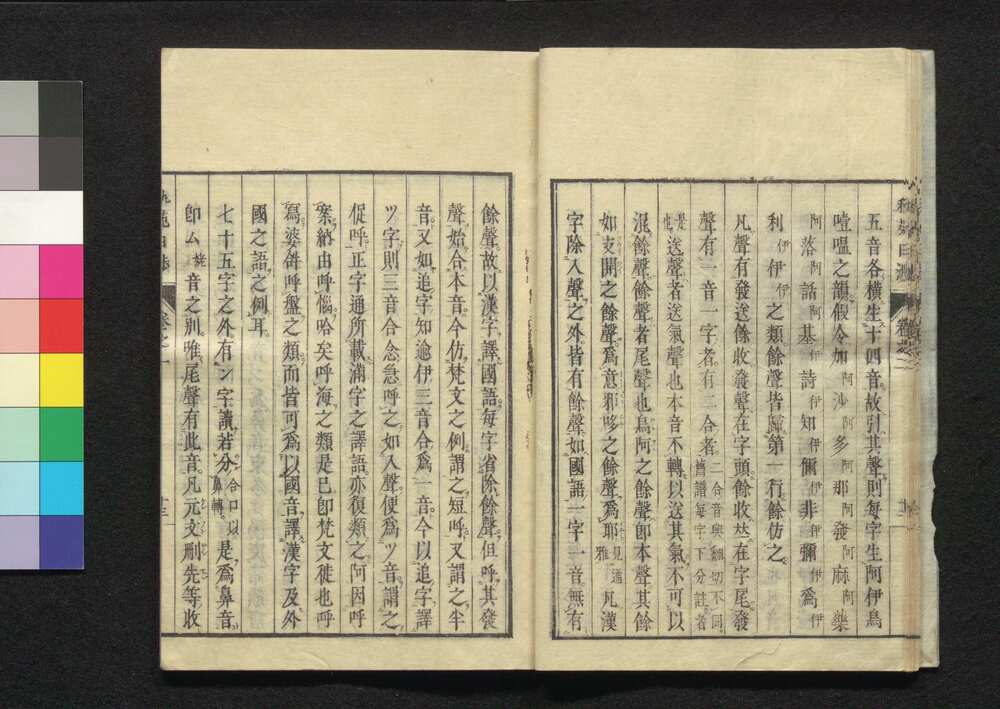 五音各橫生十四音故引其聲則每字生阿伊烏
噎嗢之韻假令如阿沙阿多阿那阿發阿麻阿藥
阿落阿話阿基伊詩伊知伊爾伊非伊彌伊爲伊
利伊伊伊之類餘聲皆歸第一行餘仿之
凡聲有發送餘收發聲在字頭餘收𠀤在字尾發
聲有一音一字者有二合者二合音與翻切不同舊譜每字下分註者
是也送聲者送氣聲也本音不轉以送其氣不可以
混餘聲餘聲者尾聲也烏阿之餘聲卽本聲其餘
如支開之餘聲爲意邪哆之餘聲爲耶見通雅凡漢
字除入聲之外皆有餘聲如國語一字一音無有
餘聲故以漢字譯國語每字省除餘聲但呼其發
聲始合本音今仿梵文之例謂之短呼又謂之半
音又如追字知逾伊三音合爲一音今以追字譯
ツ字則三音合念急呼之如入聲便爲ツ音謂之
促呼正字通所載滿字之譯語亦復類之阿因呼
案納由呼惱哈矣呼海之類是已卽梵文徙也呼
爲婆舛呼盤之類而皆可爲以國音譯漢字及外
國之語之例耳
七十五字之外有ン字讀若分合口以鼻轉是爲鼻音
卽ム音之別唯尾聲有此音凡元文刪先等收